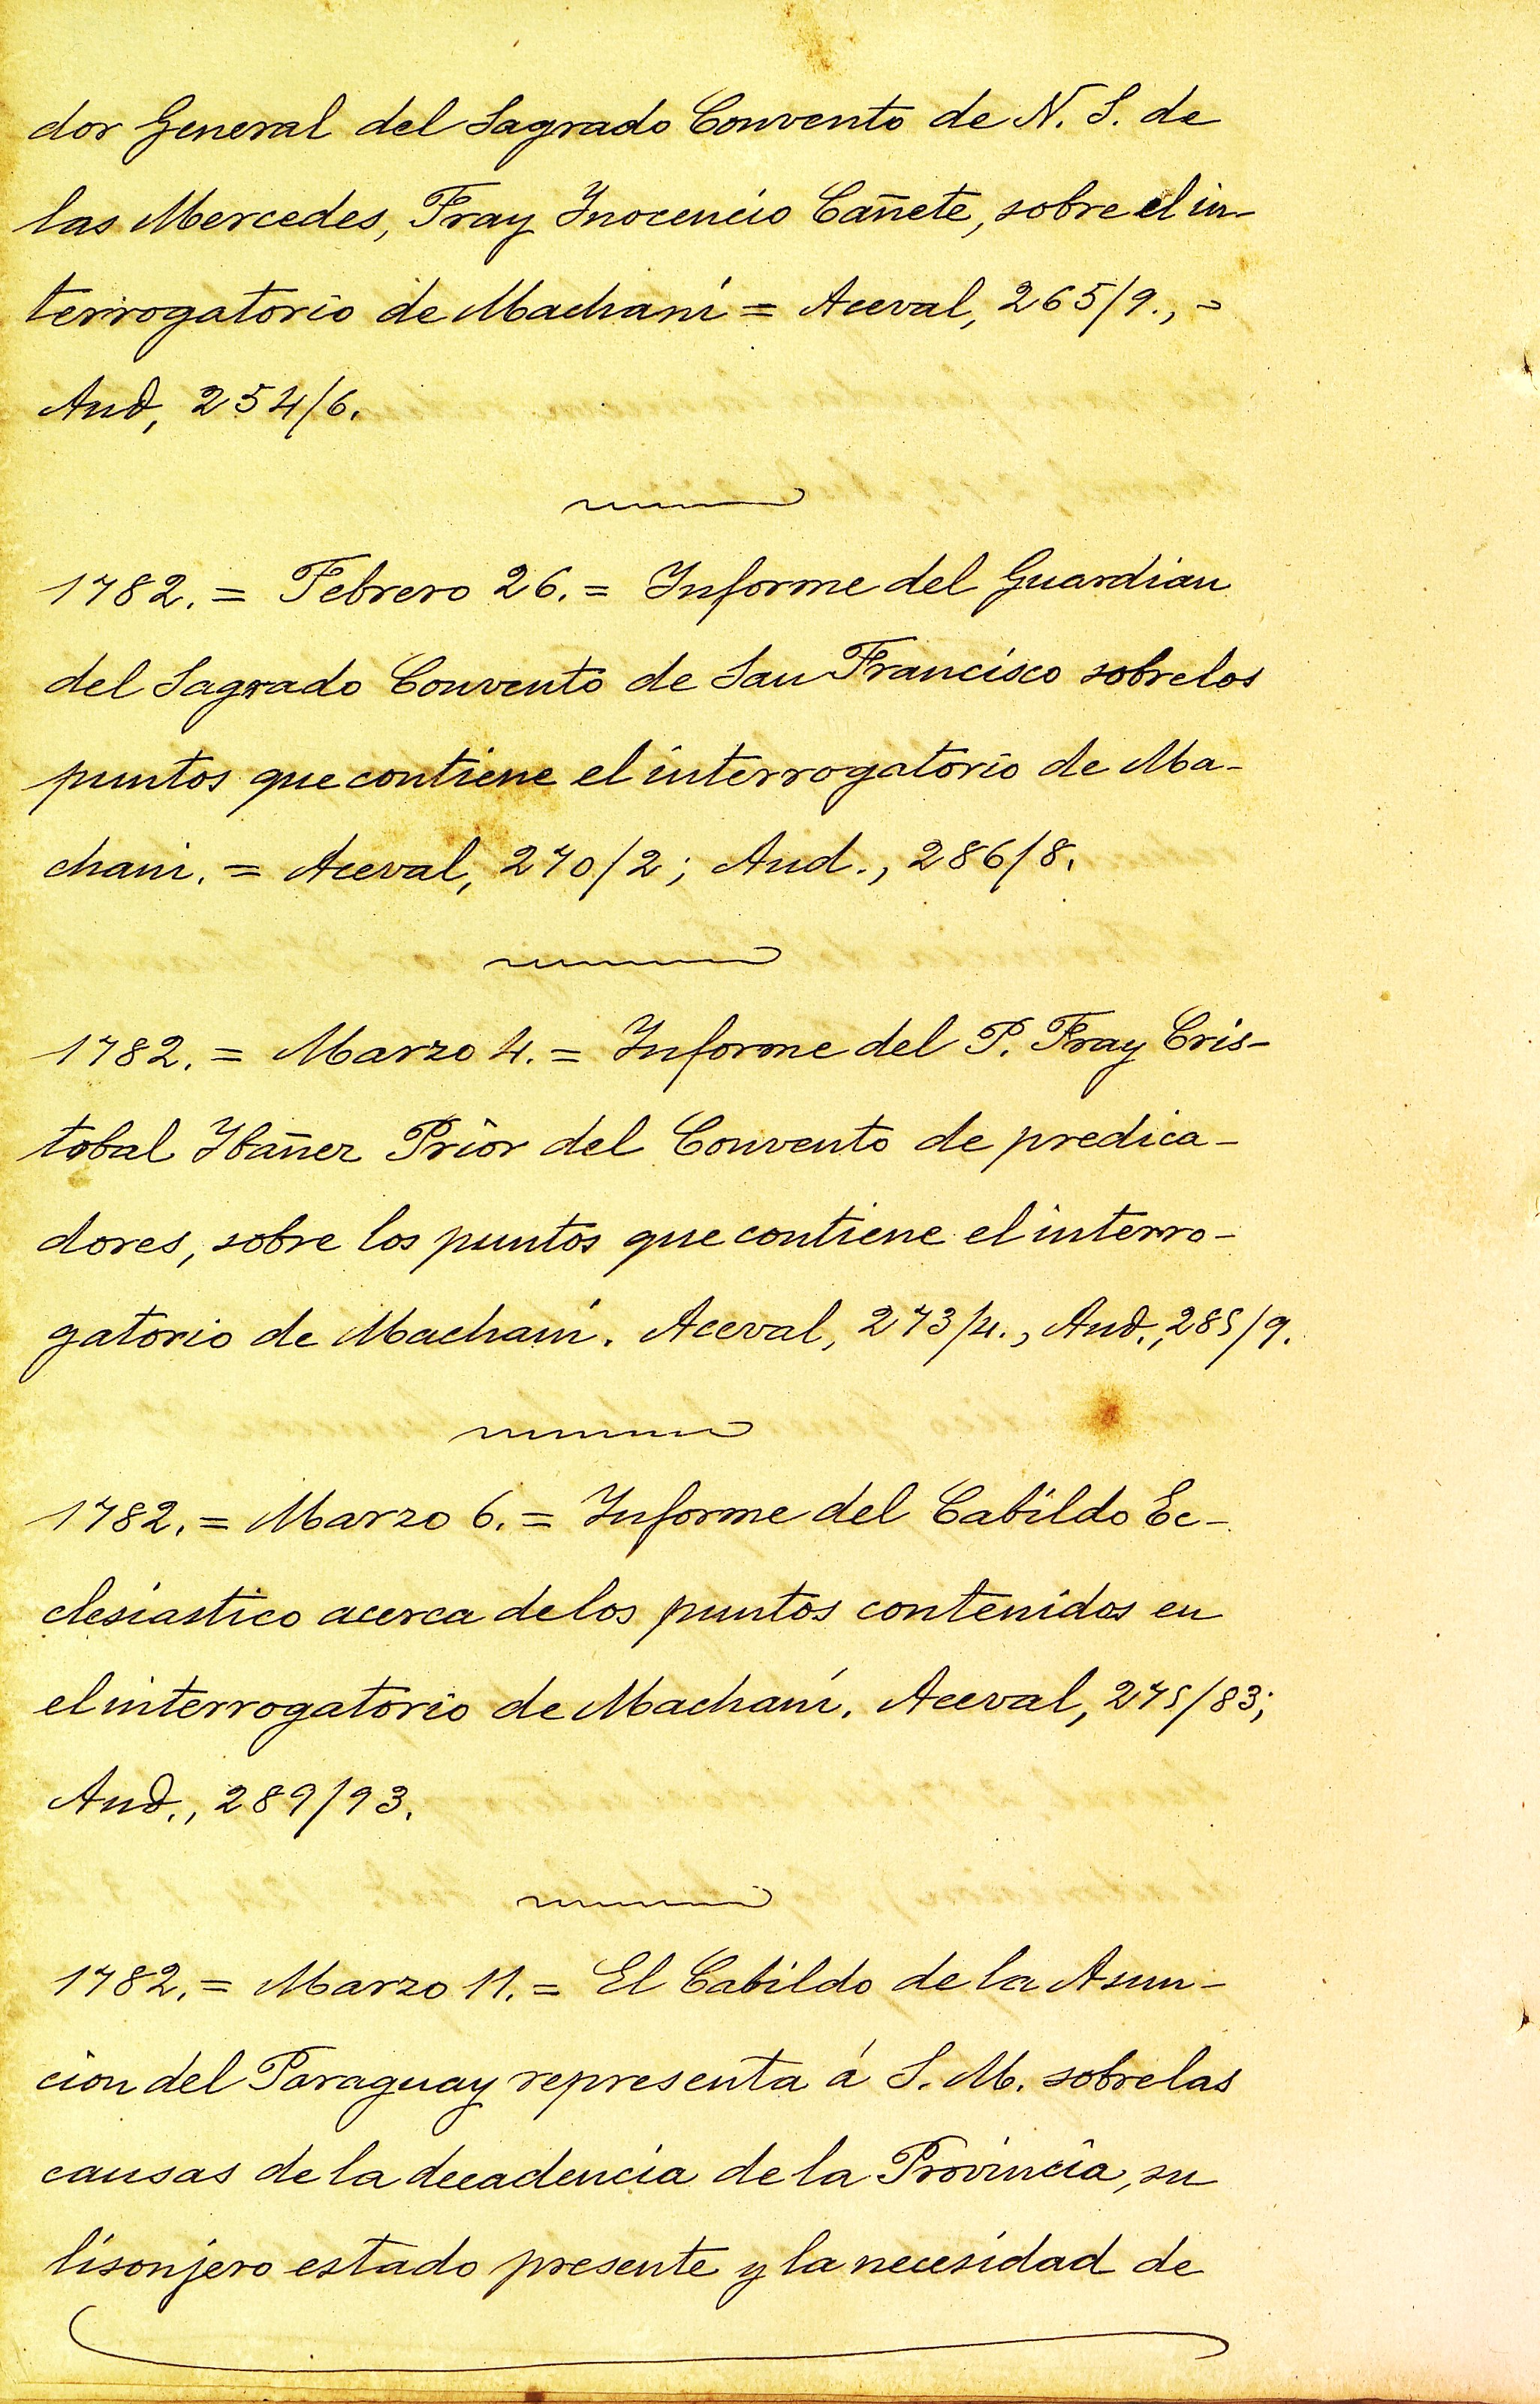 dor General del Sagrado Convento de N. S. de
las Mercedes, Fray Inocencio Cañete, sobre el in-
terrogatorio de Machaní = Aceval, 265/9., =
Aud, 254/6.
1782. = Febrero 26. = Informe del Guardian
del Sagrado Convento de San Francisco sobre los
puntos que contiene el interrogatorio de Ma-
chani. = Aceval, 270/2; Aud., 286/8.
1782. = Marzo 4. = Informe del P. Fray Cris-
tobal Ibañez Prior del Convento de predica-
dores, sobre los puntos que contiene el interro-
gatorio de Machaní. Aceval, 273/4., Aud., 285/9.
1782. = Marzo 6. = Informe del Cabildo Ec-
clesiastico acerca de los puntos contenidos en
el interrogatorio de Machaní. Aceval, 275/83;
Aud., 289/93.
1782. = Marzo 11. = El Cabildo de la Asun-
cion del Paraguay representa á S. M. sobre las
causas de la decadencia de la Provincia, su
lisonjero estado presente y la necesidad de